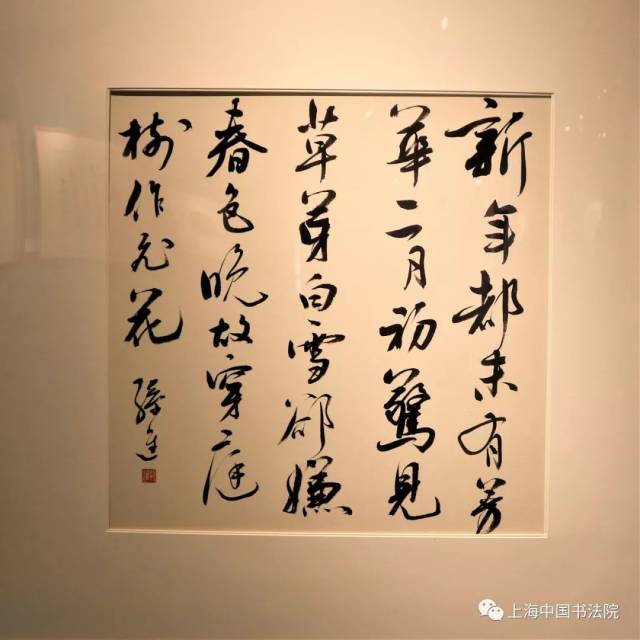 新年都未有芳
華二月初驚見
草芽白雪卻嫌
春色晚故穿庭
樹作飛花
上海中国书法院